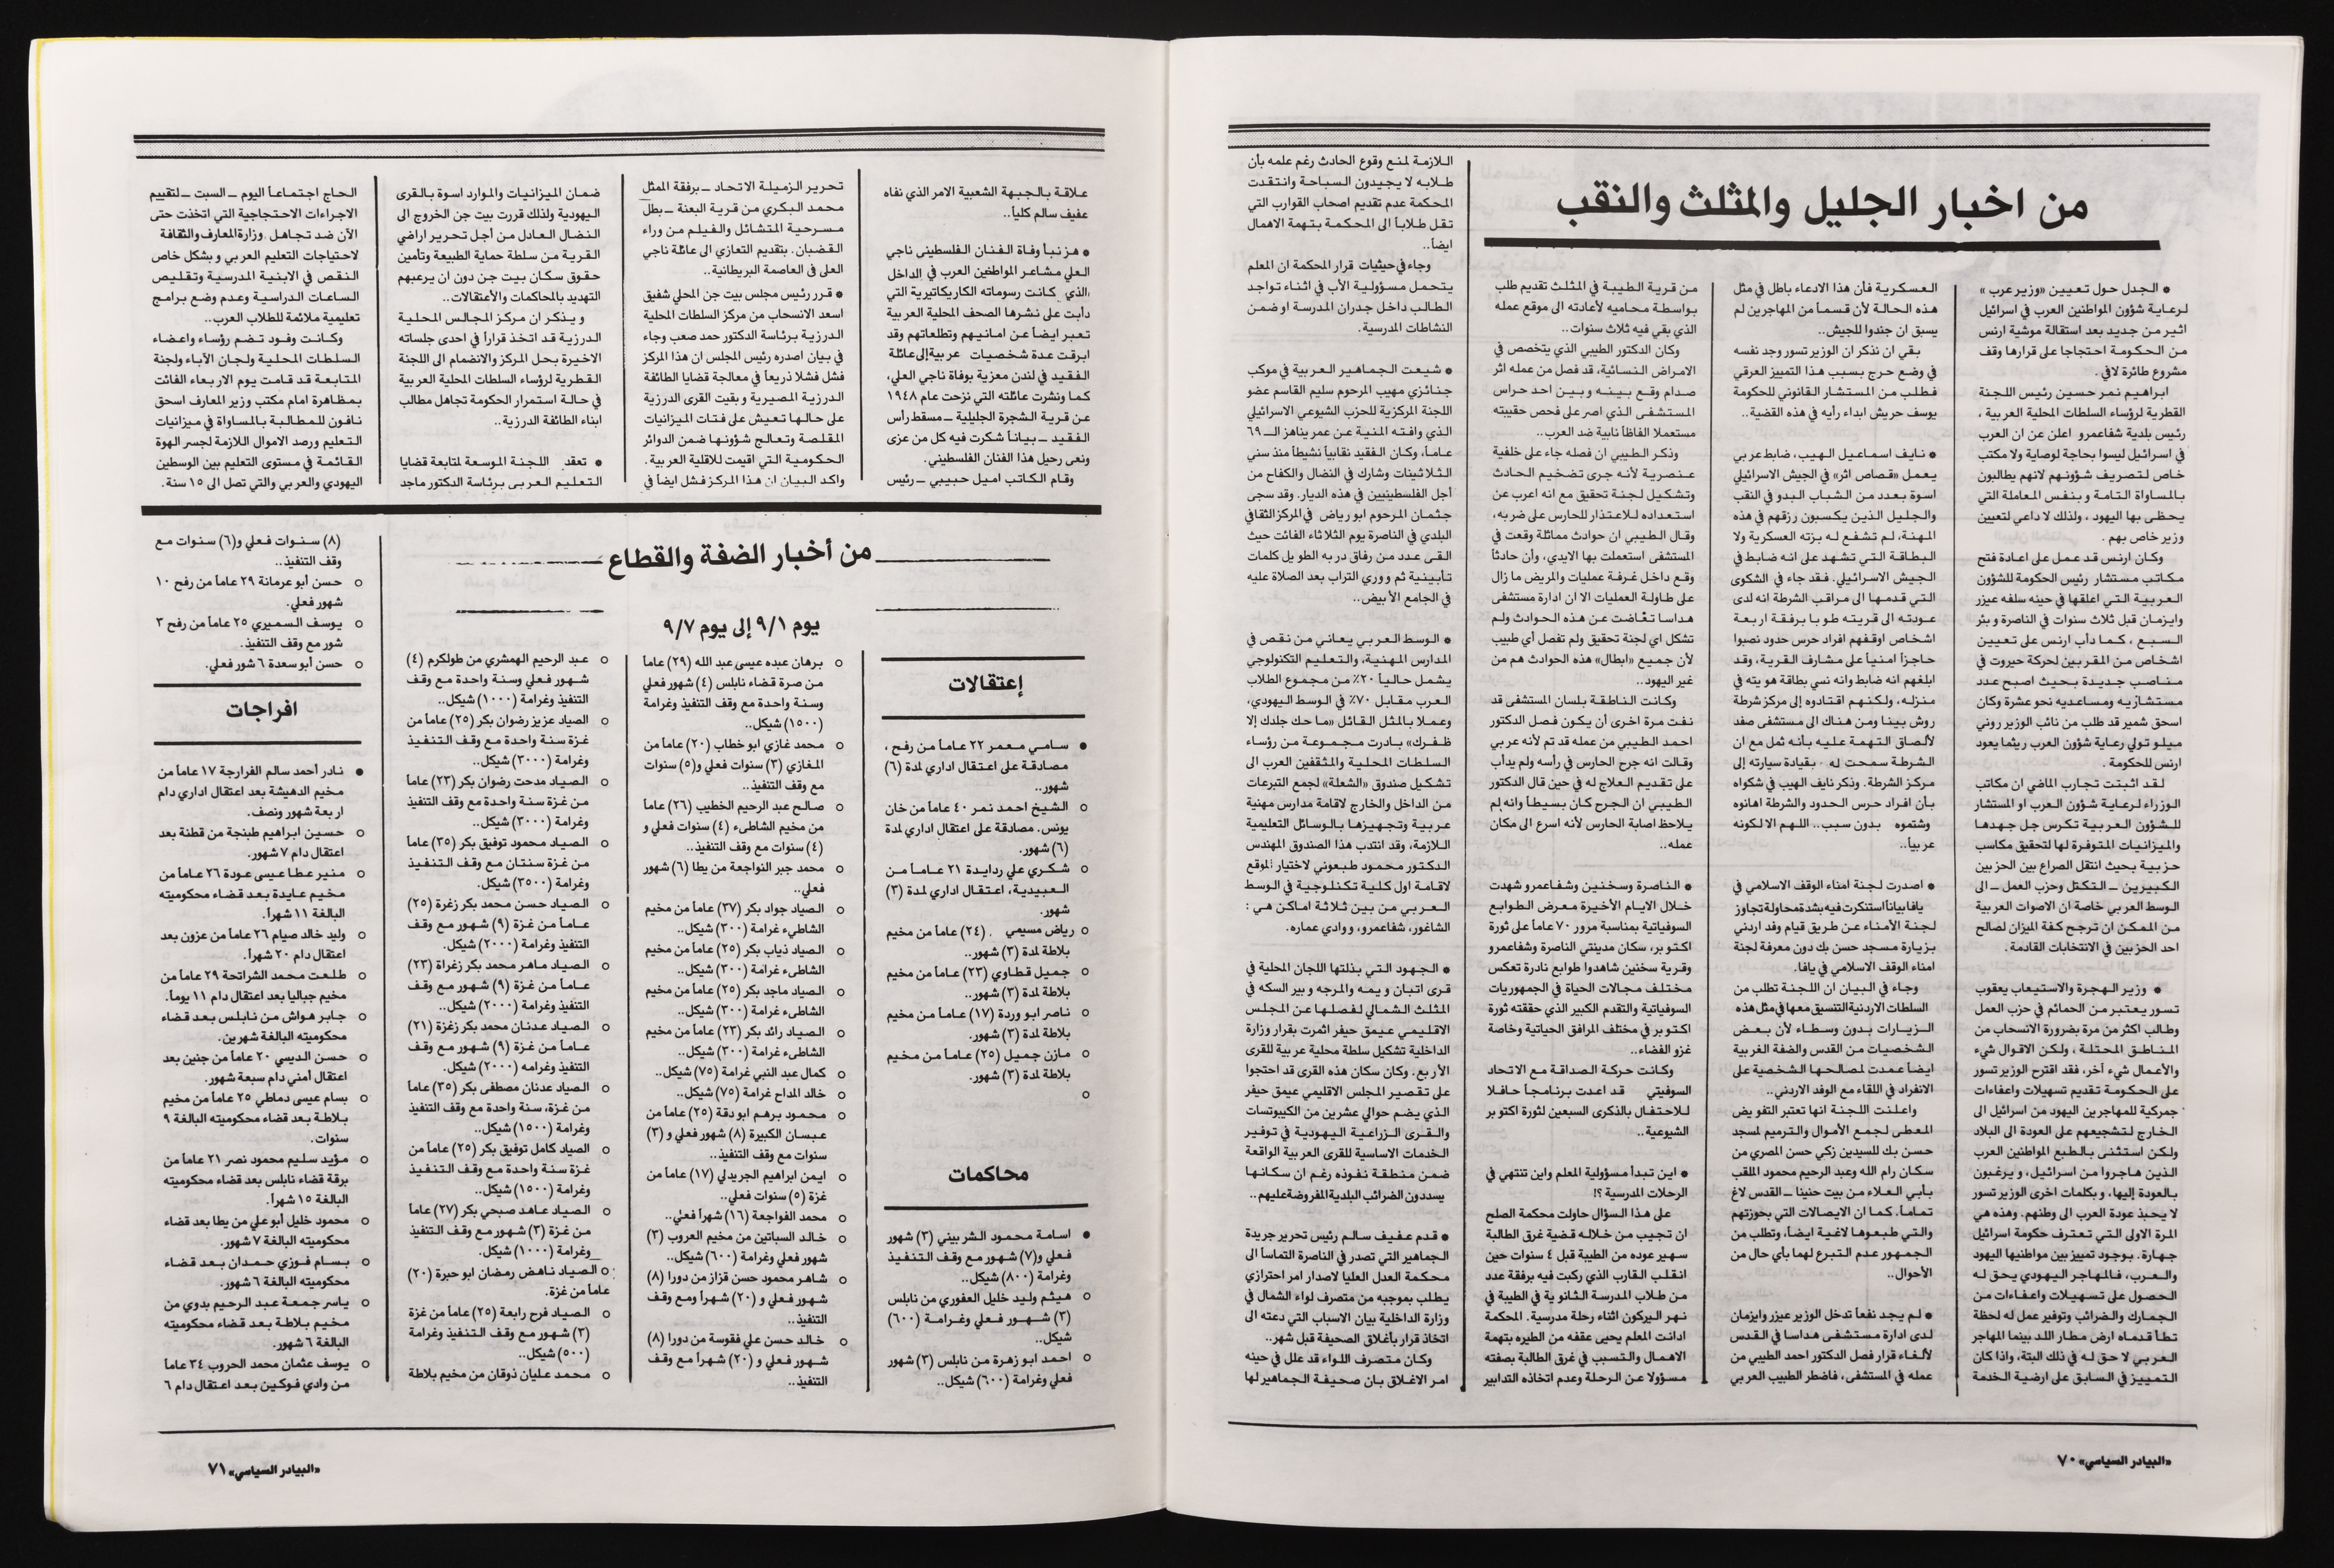 من اخبار الجليل والمثلث والنقب
● الجدل حول تعيين «وزير عرب»
لرعاية شؤون المواطنين العرب في اسرائيل
اثير من جديد بعد استقالة موشية ارنس
من الحكومة احتجاجا على قرارها وقف
مشروع طائرة لافي.
ابراهيم نمر حسين رئيس اللجنة
القطرية لرؤساء السلطات المحلية العربية ،
رئيس بلدية شفاعمرو اعلن عن ان العرب
في اسرائيل ليسوا بحاجة لوصاية ولا مكتب
خاص لتصريف شؤونهم لانهم يطالبون
بالمساواة التامة وبنفس المعاملة التي
يحظى بها اليهود ، ولذلك لا داعي لتعيين
وزير خاص بهم .
وكان ارنس قد عمل على اعادة فتح
مكاتب مستشار رئيس الحكومة للشؤون
العربية التي اغلقها في حينه سلفه عيزر
وايزمان قبل ثلاث سنوات في الناصرة وبئر
السبع ، كما دأب ارنس على تعيين
اشخاص من المقربين لحركة حيروت في
مناصب جديدة بحيث اصبح عدد
مستشاريه ومساعديه نحو عشرة وكان
اسحق شمير قد طلب من نائب الوزير روني
ميلو تولي رعاية شؤون العرب ريثما يعود
ارنس للحكومة .
لقد اثبتت تجارب الماضي ان مكاتب
الوزراء لرعاية شؤون العرب او المستشار
للشؤون العربية تكرس جل جهدها
والميزانيات المتوفرة لها لتحقيق مكاسب
حزبية بحيث انتقل الصراع بين الحزبين
الكبيرين ــ التكتل وحزب العمل ــ الى
الوسط العربي خاصة ان الاصوات العربية
من الممكن ان ترجح كفة الميزان لصالح
احد الحزبين في الانتخابات القادمة .
● وزير الهجرة والاستيعاب يعقوب
تسور يعتبر من الحمائم في حزب العمل
وطالب اكثر من مرة بضرورة الانسحاب من
المناطق المحتلة ، ولكن الاقوال شيء
والأعمال شيء آخر، فقد اقترح الوزير تسور
على الحكومة تقديم تسهيلات واعفاءات
جمركية للمهاجرين اليهود من اسرائيل الى
الخارج لتشجيعهم على العودة الى البلاد
ولكن استثنى بالطبع المواطنين العرب
الذين هاجروا من اسرائيل، ويرغبون
بالعودة إليها، وبكلمات اخرى الوزير تسور
لا يحبذ عودة العرب الى وطنهم. وهذه هي
المرة الاولى التي تعترف حكومة اسرائيل
جهارة. بوجود تمييز بين مواطنيها اليهود
والعرب، فالمهاجر اليهودي يحق له
الحصول على تسهيلات واعفاءات من
الجمارك والضرائب وتوفير عمل له لحظة
تطأ قدماه ارض مطار اللد بينما المهاجر
العربي لا حق له في ذلك البتة، واذا كان
التمييز في السابق على ارضية الخدمة
العسكرية فأن هذا الادعاء باطل في مثل
هذه الحالة لأن قسماً من المهاجرين لم
يسبق ان جندوا للجيش..
بقي ان نذكر ان الوزير تسور وجد نفسه
في وضع حرج بسبب هذا التمييز العرقي
فطلب من المستشار القانوني للحكومة
يوسف حريش ابداء رأيه في هذه القضية..
● نايف اسماعيل الهيب، ضابط عربي
يعمل «قصاص اثر» في الجيش الاسرائيلي
اسوة بعدد من الشباب البدو في النقب
والجليل الذين يكسبون رزقهم في هذه
المهنة، لم تشفع له بزته العسكرية ولا
البطاقة التي تشهد على انه ضابط في
الجيش الاسرائيلي. فقد جاء في الشكوى
التي قدمها الى مراقب الشرطة انه لدى
عودته الى قريته طوبا برفقة اربعة
اشخاص اوقفهم افراد حرس حدود نصبوا
حاجزاً امنياً على مشارف القرية، وقد
ابلغهم انه ضابط وانه نسي بطاقة هويته في
منزله، ولكنهم اقتادوه إلى مركز شرطة
روش بينا ومن هناك الى مستشفى صفد
لألصاق التهمة عليه بأنه ثمل مع ان
الشرطة سمحت له بقيادة سيارته إلى
مركز الشرطة. وذكر نايف الهيب في شكواه
بأن افراد حرس الحدود والشرطة اهانوه
وشتموه بدون سبب.. اللهم الا لكونه
عربياً..
● اصدرت لجنة امناء الوقف الاسلامي في
يافا بياناً استنكرت فيه بشدة محاولة تجاوز
لجنة الأمناء عن طريق قيام وفد اردني
بزيارة مسجد حسن بك دون معرفة لجنة
امناء الوقف الاسلامي في يافا.
وجاء في البيان ان اللجنة تطلب من
السلطات الاردنية التنسيق معها في مثل هذه
الزيارات بدون وسطاء لأن بعض
الشخصيات من القدس والضفة الغربية
ايضاً عمدت لمصالحها الشخصية على
الانفراد في اللقاء مع الوفد الاردني..
واعلنت اللجنة انها تعتبر التفويض
المعطى لجمع الأموال والترميم لمسجد
حسن بك للسيدين زكي حسن المصري من
سكان رام الله وعبد الرحيم محمود الملقب
بأبي العلاء من بيت حنينا ــ القدس لاغ
تماماً. كما ان الايصالات التي بحوزتهم
والتي طبعوها لاغية ايضاً، وتطلب من
الجمهور عدم التبرع لهما بأي حال من
الأحوال..
● لم يجد نفعاً تدخل الوزير عيزر وايزمان
لدى ادارة مستشفى هداسا في القدس
لألغاء قرار فصل الدكتور احمد الطيبي من
عمله في المستشفى، فاضطر الطبيب العربي
من قرية الطيبة في المثلث تقديم طلب
بواسطة محاميه لأعادته الى موقع عمله
الذي بقي فيه ثلاث سنوات..
وكان الدكتور الطيبي الذي يتخصص في
الامراض النسائية، قد فصل من عمله اثر
صدام وقع بينه وبين احد حراس
المستشفى الذي اصر على فحص حقيبته
مستعملا الفاظاً نابية ضد العرب..
وذكر الطيبي ان فصله جاء على خلفية
عنصرية لأنه جرى تضخيم الحادث
وتشكيل لجنة تحقيق مع انه اعرب عن
استعداده للاعتذار للحارس على ضربه،
وقال الطيبي ان حوادث مماثلة وقعت في
المستشفى استعملت بها الايدي، وأن حادثاً
وقع داخل غرفة عمليات والمريض ما زال
على طاولة العمليات الا ان ادارة مستشفى
هداسا تغاضت عن هذه الحوادث ولم
تشكل اي لجنة تحقيق ولم تفصل أي طبيب
لأن جميع «ابطال» هذه الحوادث هم من
غير اليهود..
وكانت الناطقة بلسان المستشفى قد
نفت مرة اخرى أن يكون فصل الدكتور
احمد الطيبي من عمله قد تم لأنه عربي
وقالت انه جرح الحارس في رأسه ولم يدأب
على تقديم العلاج له في حين قال الدكتور
الطيبي ان الجرح كان بسيطاً وانه لم
يلاحظ اصابة الحارس لأنه اسرع الى مكان
عمله..
● الناصرة وسخنين وشفاعمرو شهدت
خلال الايام الأخيرة معرض الطوابع
السوفياتية بمناسبة مرور ٧٠ عاماً على ثورة
اكتوبر، سكان مدينتي الناصرة وشفاعمرو
وقرية سخنين شاهدوا طوابع نادرة تعكس
مختلف مجالات الحياة في الجمهوريات
السوفياتية والتقدم الكبير الذي حققته ثورة
اكتوبر في مختلف المرافق الحياتية وخاصة
غزو الفضاء..
وكانت حركة الصداقة مع الاتحاد
السوفيتي قد اعدت برنامجاً حافلا
للاحتفال بالذكرى السبعين لثورة اكتوبر
الشيوعية..
● اين تبدأ مسؤولية المعلم واين تنتهي في
الرحلات المدرسية ؟!
على هذا السؤال حاولت محكمة الصلح
ان تجيب من خلاله قضية غرق الطالبة
سهير عوده من الطيبة قبل ٤ سنوات حين
انقلب القارب الذي ركبت فيه برفقة عدد
من طلاب المدرسة الثانوية في الطيبة في
نهر اليركون اثناء رحلة مدرسية. المحكمة
ادانت المعلم يحيى عقفه من الطيره بتهمة
الاهمال والتسبب في غرق الطالبة بصفته
مسؤولا عن الرحلة وعدم اتخاذه التدابير
اللازمة لمنع وقوع الحادث رغم علمه بأن
طلابه لا يجيدون السباحة وانتقدت
المحكمة عدم تقديم اصحاب القوارب التي
تقل طلاباً الى المحكمة بتهمة الاهمال
ايضاً..
وجاء في حيثيات قرار المحكمة ان المعلم
يتحمل مسؤولية الأب في اثناء تواجد
الطالب داخل جدران المدرسة او ضمن
النشاطات المدرسية.
● شيعت الجماهير العربية في موكب
جنائزي مهيب المرحوم سليم القاسم عضو
اللجنة المركزية للحزب الشيوعي الاسرائيلي
الذي وافته المنية عن عمر يناهز الــ ٦٩
عاماً، وكان الفقيد نقابياً نشيطاً منذ سني
الثلاثينات وشارك في النضال والكفاح من
أجل الفلسطينيين في هذه الديار. وقد سجى
جثمان المرحوم ابو رياض في المركز الثقافي
البلدي في الناصرة يوم الثلاثاء الفائت حيث
القى عدد من رفاق دربه الطويل كلمات
تأبينية ثم ووري التراب بعد الصلاة عليه
في الجامع الأبيض..
● الوسط العربي يعاني من نقص في
المدارس المهنية، والتعليم التكنولوجي
يشمل حالياً ٢٠٪ من مجموع الطلاب
العرب مقابل ٧٠٪ في الوسط اليهودي،
وعملا بالمثل القائل «ما حك جلدك إلا
ظفرك» بادرت مجموعة من رؤساء
السلطات المحلية والمثقفين العرب الى
تشكيل صندوق «الشعلة» لجمع التبرعات
من الداخل والخارج لاقامة مدارس مهنية
عربية وتجهيزها بالوسائل التعليمية
اللازمة، وقد انتدب هذا الصندوق المهندس
الدكتور محمود طبعوني لاختيار الموقع
لاقامة اول كلية تكنلوجية في الوسط
العربي من بين ثلاثة اماكن هي :
الشاغور، شفاعمرو، ووادي عماره.
● الجهود التي بذلتها اللجان المحلية في
قرى اتبان ويمه والمرجه وبير السكه في
المثلث الشمالي لفصلها عن المجلس
الاقليمي عيمق حيفر اثمرت بقرار وزارة
الداخلية تشكيل سلطة محلية عربية للقرى
الأربع. وكان سكان هذه القرى قد احتجوا
على تقصير المجلس الاقليمي عيمق حيفر
الذي يضم حوالي عشرين من الكيبوتسات
والقرى الزراعية اليهودية في توفير
الخدمات الاساسية للقرى العربية الواقعة
ضمن منطقة نفوذه رغم ان سكانها
يسددون الضرائب البلدية المفروضة عليهم..
● قدم عفيف سالم رئيس تحرير جريدة
الجماهير التي تصدر في الناصرة التماساً الى
محكمة العدل العليا لاصدار امر احترازي
يطلب بموجبه من متصرف لواء الشمال في
وزارة الداخلية بيان الاسباب التي دعته الى
اتخاذ قرار بأغلاق الصحيفة قبل شهر..
وكان متصرف اللواء قد علل في حينه
امر الاغلاق بان صحيفة الجماهير لها
«البيادر السياسي» ٧٠
علاقة بالجبهة الشعبية الامر الذي نفاه
عفيف سالم كلياً..
● هز نبأ وفاة الفنان الفلسطيني ناجي
العلي مشاعر المواطنين العرب في الداخل
الذي كانت رسوماته الكاريكاتيرية التي
دأبت على نشرها الصحف المحلية العربية
تعبر ايضاً عن امانيهم وتطلعاتهم وقد
ابرقت عدة شخصيات عربية إلى عائلة
الفقيد في لندن معزية بوفاة ناجي العلي،
كما ونشرت عائلته التي نزحت عام ١٩٤٨
عن قرية الشجرة الجليلية ــ مسقط رأس
الفقيد ــ بياناً شكرت فيه كل من عزى
ونعى رحيل هذا الفنان الفلسطيني.
وقام الكاتب اميل حبيبي ــ رئيس
تحرير الزميلة الاتحاد ــ برفقة الممثل
محمد البكري من قرية البعنة ــ بطل
مسرحية المتشائل والفيلم من وراء
القضبان. بتقديم التعازي الى عائلة ناجي
العلى في العاصمة البريطانية..
● قرر رئيس مجلس بيت جن المحلي شفيق
اسعد الانسحاب من مركز السلطات المحلية
الدرزية برئاسة الدكتور حمد صعب وجاء
في بيان اصدره رئيس المجلس ان هذا المركز
فشل فشلا ذريعاً في معالجة قضايا الطائفة
الدرزية المصيرية وبقيت القرى الدرزية
على حالها تعيش على فتات الميزانيات
المقلصة وتعالج شؤونها ضمن الدوائر
الحكومية التي اقيمت للاقلية العربية.
واكد البيان ان هذا المركز فشل ايضاً في
ضمان الميزانيات والموارد اسوة بالقرى
اليهودية ولذلك قررت بيت جن الخروج الى
النضال العادل من أجل تحرير اراضي
القرية من سلطة حماية الطبيعة وتأمين
حقوق سكان بيت جن دون ان يرعبهم
التهديد بالمحاكمات والأعتقالات..
ويذكر ان مركز المجالس المحلية
الدرزية قد اتخذ قراراً في احدى جلساته
الاخيرة بحل المركز والانضمام الى اللجنة
القطرية لرؤساء السلطات المحلية العربية
في حالة استمرار الحكومة تجاهل مطالب
ابناء الطائفة الدرزية..
● تعقد اللجنة الموسعة لمتابعة قضايا
التعليم العربي برئاسة الدكتور ماجد
الحاج اجتماعاً اليوم ــ السبت ــ لتقييم
الاجراءات الاحتجاجية التي اتخذت حتى
الآن ضد تجاهل وزارة المعارف والثقافة
لاحتياجات التعليم العربي وبشكل خاص
النقص في الابنية المدرسية وتقليص
الساعات الدراسية وعدم وضع برامج
تعليمية ملائمة للطلاب العرب..
وكانت وفود تضم رؤساء واعضاء
السلطات المحلية ولجان الآباء ولجنة
المتابعة قد قامت يوم الاربعاء الفائت
بمظاهرة امام مكتب وزير المعارف اسحق
نافون للمطالبة بالمساواة في ميزانيات
التعليم ورصد الاموال اللازمة لجسر الهوة
القائمة في مستوى التعليم بين الوسطين
اليهودي والعربي والتي تصل الى ١٥ سنة.
من أخبار الضفة والقطاع
يوم ٩/١ إلى يوم ٩/٧
إعتقالات
● سامي معمر ٢٢ عاماً من رفح ،
مصادقة على اعتقال اداري لمدة (٦)
شهور..
○ الشيخ احمد نمر ٤٠ عاماً من خان
يونس. مصادقة على اعتقال اداري لمدة
(٦) شهور.
○ شكري علي ردايدة ٢١ عاماً من
العبيدية، اعتقال اداري لمدة (٣)
شهور.
○ رياض مسيمي . (٢٤) عاماً من مخيم
بلاطة لمدة (٣) شهور..
○ جميل قطاوي (٢٣) عاماً من مخيم
بلاطة لمدة (٣) شهور..
○ ناصر ابو وردة (١٧) عاماً من مخيم
بلاطة لمدة (٣) شهور.
○ مازن جميل (٢٥) عاماً من مخيم
بلاطة لمدة (٣) شهور.
○
محاكمات
● اسامة محمود الشربيني (٣) شهور
فعلي و(٧) شهور مع وقف التنفيذ
وغرامة (٨٠٠) شيكل..
○ هيثم وليد خليل العفوري من نابلس
(٣) شهور فعلي وغرامة (٦٠٠)
شيكل..
○ احمد ابو زهرة من نابلس (٣) شهور
فعلي وغرامة (٦٠٠) شيكل..
○ برهان عبده عيسى عبد الله (٢٩) عاماً
من صرة قضاء نابلس (٤) شهور فعلي
وسنة واحدة مع وقف التنفيذ وغرامة
(١٥٠٠) شيكل..
○ محمد غازي ابو خطاب (٢٠) عاماً من
المغازي (٣) سنوات فعلي و(٥) سنوات
مع وقف التنفيذ..
○ صالح عبد الرحيم الخطيب (٢٦) عاماً
من مخيم الشاطىء (٤) سنوات فعلي و
(٤) سنوات مع وقف التنفيذ..
○ محمد جبر النواجعة من يطا (٦) شهور
فعلي..
○ الصياد جواد بكر (٣٧) عاماً من مخيم
الشاطيء غرامة (٣٠٠) شيكل..
○ الصياد ذياب بكر (٢٥) عاماً من مخيم
الشاطىء غرامة (٣٠٠) شيكل..
○ الصياد ماجد بكر (٢٥) عاماً من مخيم
الشاطىء غرامة (٣٠٠) شيكل..
○ الصياد رائد بكر (٢٣) عاماً من مخيم
الشاطىء غرامة (٣٠٠) شيكل..
○ كمال عبد النبي غرامة (٧٥) شيكل..
○ خالد المداح غرامة (٧٥) شيكل..
○ محمود برهم ابو دقة (٢٥) عاماً من
عبسان الكبيرة (٨) شهور فعلي و (٣)
سنوات مع وقف التنفيذ..
○ ايمن ابراهيم الجريدلي (١٧) عاماً من
غزة (٥) سنوات فعلي..
○ محمد الفواجعة (١٦) شهراً فعلي..
○ خالد السباتين من مخيم العروب (٣)
شهور فعلي وغرامة (٦٠٠) شيكل..
○ شاهر محمود حسن قزاز من دورا (٨)
شهور فعلي و (٢٠) شهراً ومع وقف
التنفيذ..
○ خالد حسن علي فقوسة من دورا (٨)
شهور فعلي و (٢٠) شهراً مع وقف
التنفيذ..
○ عبد الرحيم الهمشري من طولكرم (٤)
شهور فعلي وسنة واحدة مع وقف
التنفيذ وغرامة (١٠٠٠) شيكل.
○ الصياد عزيز رضوان بكر (٢٥) عاماً من
غزة سنة واحدة مع وقف التنفيذ
وغرامة (٣٠٠٠) شيكل..
○ الصياد مدحت رضوان بكر (٢٣) عاماً
من غزة سنة واحدة مع وقف التنفيذ
وغرامة (٣٠٠٠) شيكل..
○ الصياد محمود توفيق بكر (٣٥) عاماً
من غزة سنتان مع وقف التنفيذ
وغرامة (٣٥٠٠) شيكل.
○ الصياد حسن محمد بكر زغرة (٢٥)
عاماً من غزة (٩) شهور مع وقف
التنفيذ وغرامة (٢٠٠٠) شيكل.
○ الصياد ماهر محمد بكر زغراة (٢٣)
عاماً من غزة (٩) شهور مع وقف
التنفيذ وغرامة (٢٠٠٠) شيكل..
○ الصياد عدنان محمد بكر زغزة (٢١)
عاماً من غزة (٩) شهور مع وقف
التنفيذ وغرامه (٢٠٠٠) شيكل.
○ الصياد عدنان مصطفى بكر (٣٥) عاماً
من غزة، سنة واحدة مع وقف التنفيذ
وغرامة (١٥٠٠) شيكل..
○ الصياد كامل توفيق بكر (٢٥) عاماً من
غزة سنة واحدة مع وقف التنفيذ
وغرامة (١٥٠٠) شيكل..
○ الصياد عاهد صبحي بكر (٢٧) عاماً
من غزة (٣) شهور مع وقف التنفيذ
وغرامة (١٠٠٠) شيكل.
○ الصياد ناهض رمضان ابو حبرة (٢٠)
عاماً من غزة.
○ الصياد فرح رابعة (٢٥) عاماً من غزة
(٣) شهور مع وقف التنفيذ وغرامة
(٥٠٠) شيكل..
○ محمد عليان ذوقان من مخيم بلاطة
(٨) سنوات فعلي و(٦) سنوات مع
وقف التنفيذ..
○ حسن أبو عرمانة ٢٩ عاماً من رفح ١٠
شهور فعلي.
○ يوسف السميري ٢٥ عاماً من رفح ٣
شور مع وقف التنفيذ.
○ حسن أبو سعدة ٦ شور فعلي.
افراجات
● نادر أحمد سالم الفرارجة ١٧ عاماً من
مخيم الدهيشة بعد اعتقال اداري دام
اربعة شهور ونصف.
○ حسين ابراهيم طبنجة من قطنة بعد
اعتقال دام ٧ شهور.
○ منير عطا عيسى عودة ٢٦ عاماً من
مخيم عايدة بعد قضاء محكوميته
البالغة ١١ شهراً.
○ وليد خالد صيام ٢٦ عاماً من عزون بعد
اعتقال دام ٢٠ شهراً.
○ طلعت محمد الشراتحة ٢٩ عاماً من
مخيم جباليا بعد اعتقال دام ١١ يوماً.
○ جابر هواش من نابلس بعد قضاء
محكوميته البالغة شهرين.
○ حسن الديسي ٢٠ عاماً من جنين بعد
اعتقال أمني دام سبعة شهور.
○ بسام عيسى دماطي ٢٥ عاماً من مخيم
بلاطة بعد قضاء محكوميته البالغة ٩
سنوات.
○ مؤيد سليم محمود نصر ٢١ عاماً من
برقة قضاء نابلس بعد قضاء محكوميته
البالغة ١٥ شهراً.
○ محمود خليل أبو علي من يطا بعد قضاء
محكوميته البالغة ٧ شهور.
○ بسام فوزي حمدان بعد قضاء
محكوميته البالغة ٦ شهور.
○ ياسر جمعة عبد الرحيم بدوي من
مخيم بلاطة بعد قضاء محكوميته
البالغة ٦ شهور.
○ يوسف عثمان محمد الحروب ٣٤ عاماً
من وادي فوكين بعد اعتقال دام ٦
«البيادر السياسي» ٧١